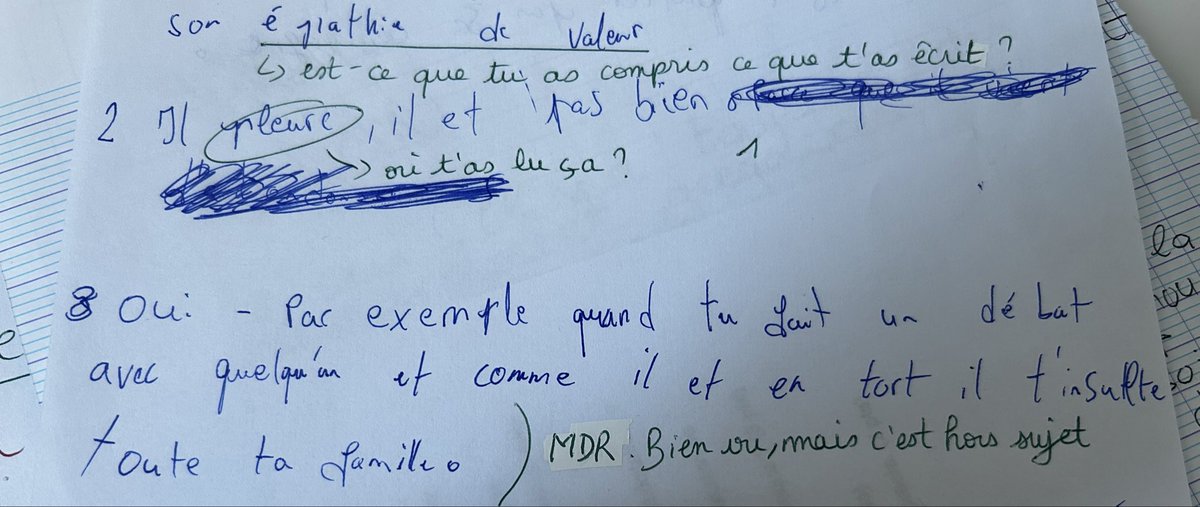 son épathie de valeur
↳ est-ce que tu as compris ce que t'as écrit ?
2 Il pleure, il et pas bien
↳ où t'as lu ça ? 1
3 Oui - Par exemple quand tu fait un débat
avec quelqu'un et comme il et en tort il t'insulte
toute ta famille.
MDR. Bien vu, mais c'est hors sujet
la